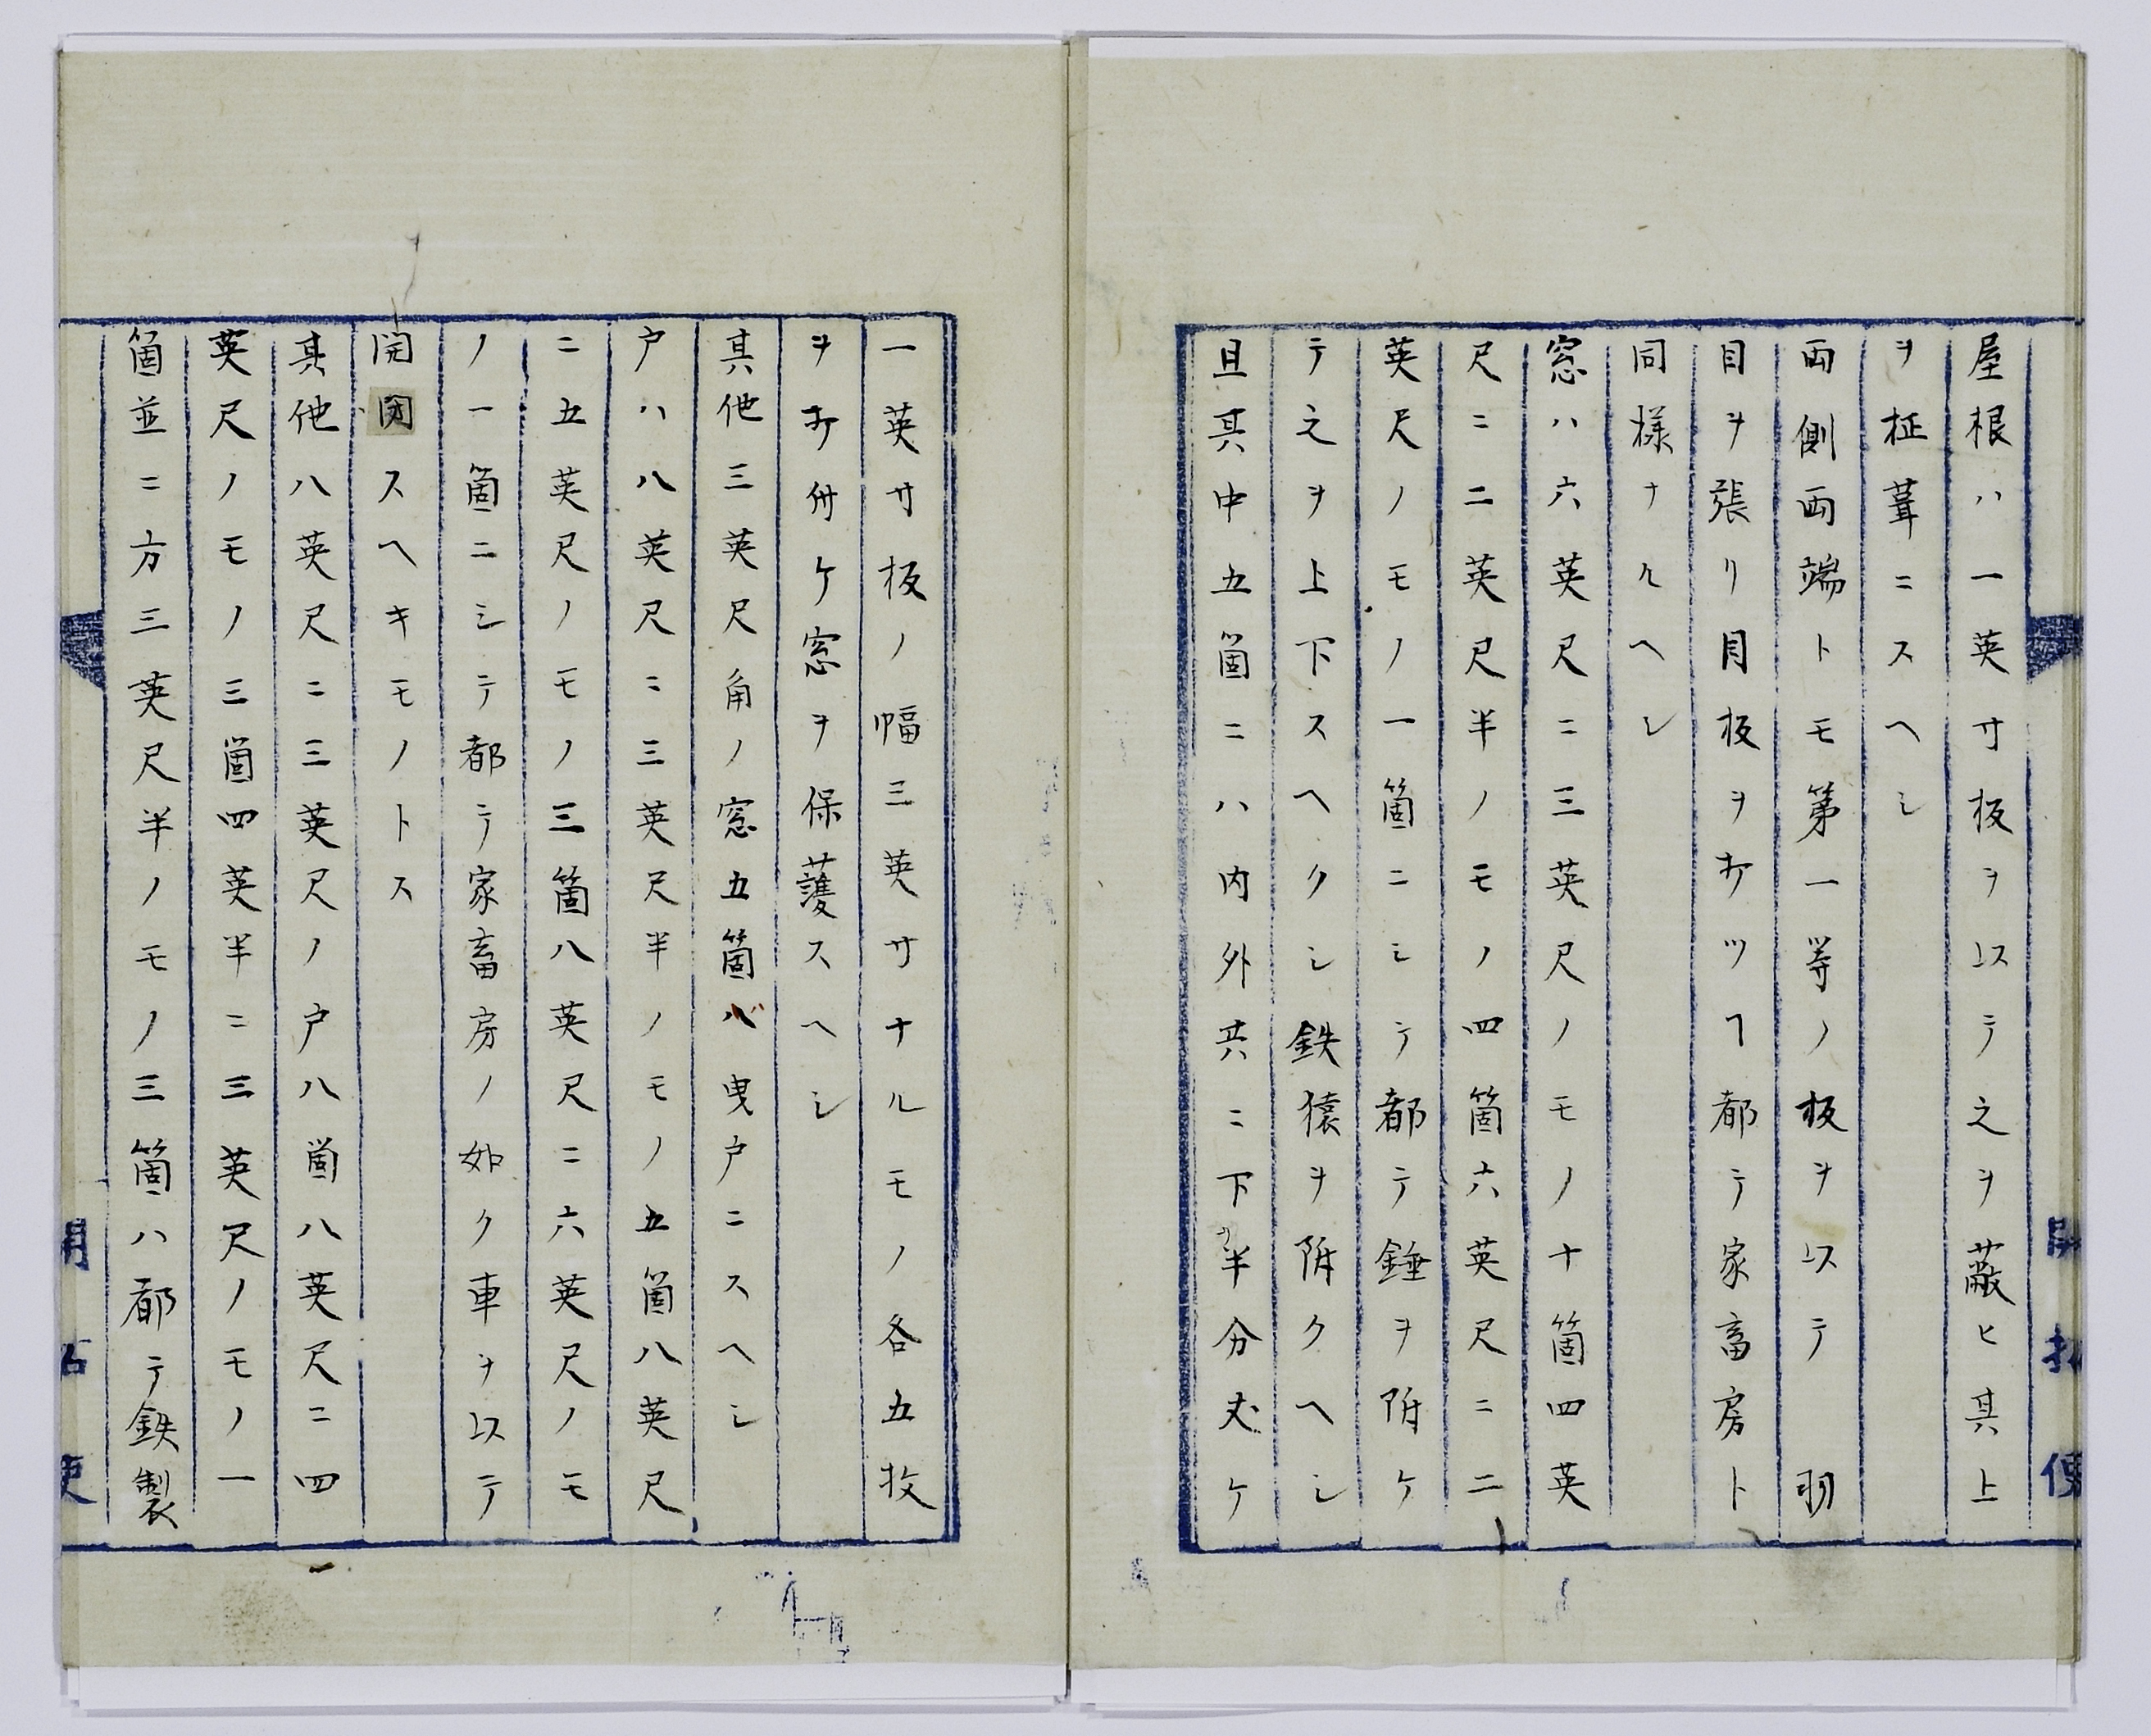 屋根ハ一英寸板ヲ以テ之ヲ蔽ヒ其上
ヲ柾葺ニスヘシ
両側両端トモ第一等ノ板ヲ以テ羽
目ヲ張リ目板ヲ打ツヿ都テ家畜房ト
同様ナルヘシ
窓ハ六英尺ニ三英尺ノモノ十箇四英
尺ニ二英尺半ノモノ四箇六英尺ニ二
英尺ノモノ一箇ニシテ都テ錘ヲ附ケ
テ之ヲ上下スヘクシ鉄猿ヲ附クヘシ
且其中五箇ニハ内外共ニ下リ半分丈ケ
一英寸板ノ幅三英寸ナルモノ各五枚
ヲ打付ケ窓ヲ保護スヘシ
其他三英尺角ノ窓五箇ハ曳戸ニスヘシ
戸ハ八英尺ニ三英尺半ノモノ五箇八英尺
ニ五英尺ノモノ三箇八英尺ニ六英尺ノモ
ノ一箇ニシテ都テ家畜房ノ如ク車ヲ以テ
開閉スヘキモノトス
其他八英尺ニ三英尺ノ戸八箇八英尺ニ四
英尺ノモノ三箇四英半ニ三英尺ノモノ一
箇並ニ方三英尺半ノモノ三箇ハ都テ鉄製
開拓使